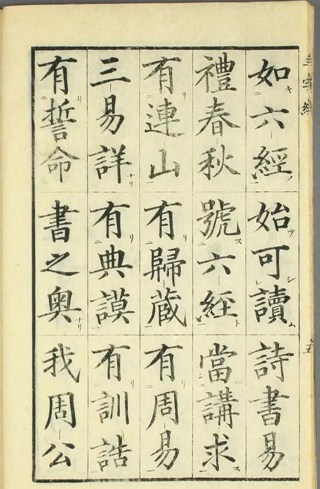 如六經始可讀詩書易
禮春秋號六經當講求
有連山有歸藏有周易
三易詳有典謨有訓誥
有誓命書之奧我周公